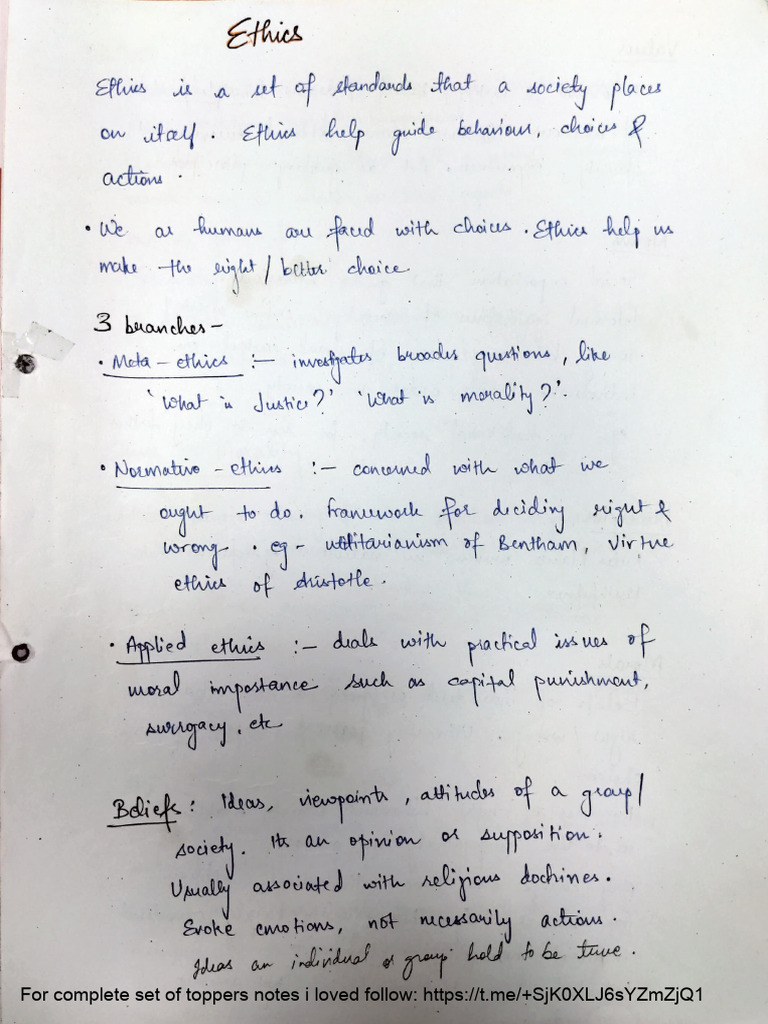 Ethics
Ethics is a set of standards that a society places
on itself. Ethics help guide behaviour, choices &
actions.
• We as humans are faced with choices. Ethics help us
make the right / better choice
3 branches –
• Meta – ethics :– investigates broader questions, like
'What is Justice?' 'What is morality?'.
• Normative – ethics :– concerned with what we
ought to do. framework for deciding right &
wrong. eg – utilitarianism of Bentham, Virtue
ethics of Aristotle.
• Applied ethics :– deals with practical issues of
moral importance such as capital punishment,
surrogacy, etc
Beliefs : Ideas, viewpoints, attitudes of a group /
society. Its an opinion or supposition.
Usually associated with religious doctrines.
Evoke emotions, not necessarily actions.
Ideas an individual or group hold to be true.
For complete set of toppers notes i loved follow: https://t.me/+SjK0XLJ6sYZmZjQ1